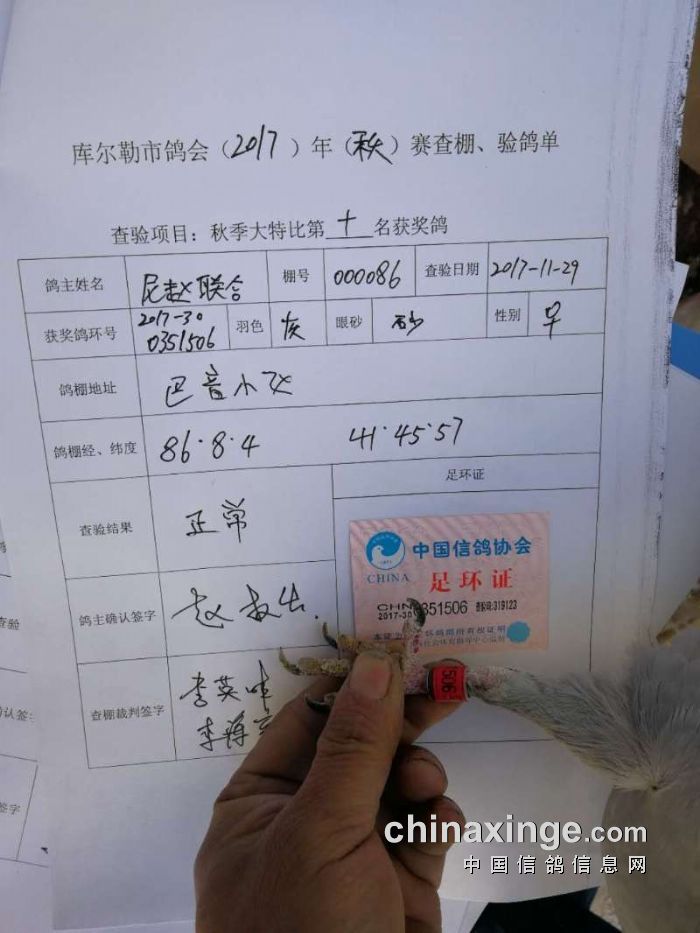 库尔勒市鸽会（2017）年（秋）赛查棚、验鸽单
查验项目：秋季大特比第十名获奖鸽
鸽主姓名 尼赵联合 棚号 000086 查验日期 2017-11-29
获奖鸽环号 2017-30 0351506 羽色 灰 眼砂 砂 性别 ♀
鸽棚地址 巴音小区
鸽棚经、纬度 86·8·4 41·45·57
足环证
查验结果 正常
中国信鸽协会
CHINA 足环证
CHN 351506 查询码:319123
2017-30
鸽主确认签字
506
查棚裁判签字 李英
李
查验
确认签
签字
chinaxinge.com
中国信鸽信息网